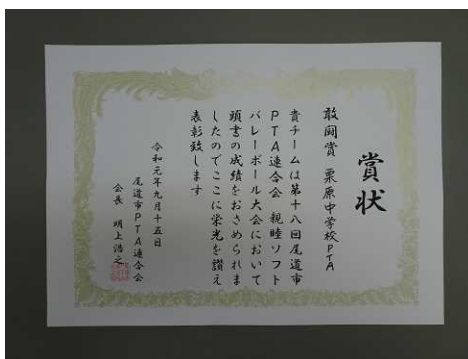 賞状
敢闘賞 栗原中学校PTA
貴チームは第十八回尾道市
PTA連合会 親睦ソフト
バレーボール大会において
頭書の成績をおさめられま
したのでここに栄光を讃え
表彰致します
令和元年九月十五日
尾道市PTA連合会
会長 明上浩之